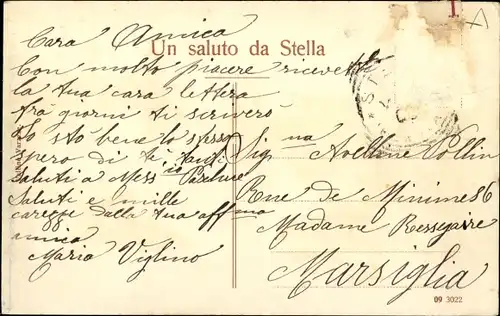 Un saluto da Stella
Cara Amica
Con molto piacere ricevetti
la tua cara lettera
frà giorni ti scriverò
Io sto bene lo stesso
spero di te
Saluti a Mess
Saluti e mille
carezze dalla tua affma
amica
Maria Viglino
Sig na Avelline Pollin
Rue de Minime 86
Madame
Marsiglia
09 3022